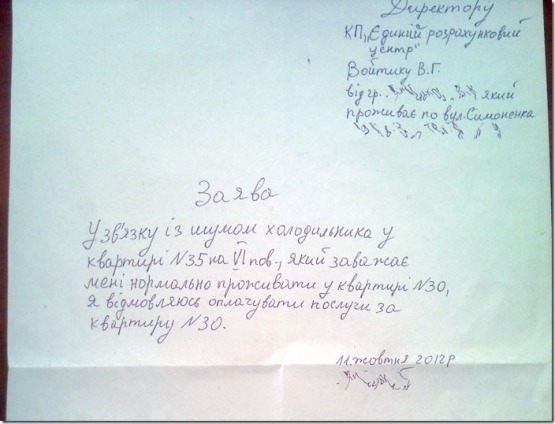 Директору
КП „Єдиний розрахунковий
центр"
Войтику В.Г.
від гр. який
проживає по вул. Симоненка
Заява
У зв'язку із шумом холодильника у
квартирі N35 на VI пов., який заважає
мені нормально проживати у квартирі N30,
я відмовляюсь оплачувати послуги за
квартиру N30.
11 жовтня 2012р